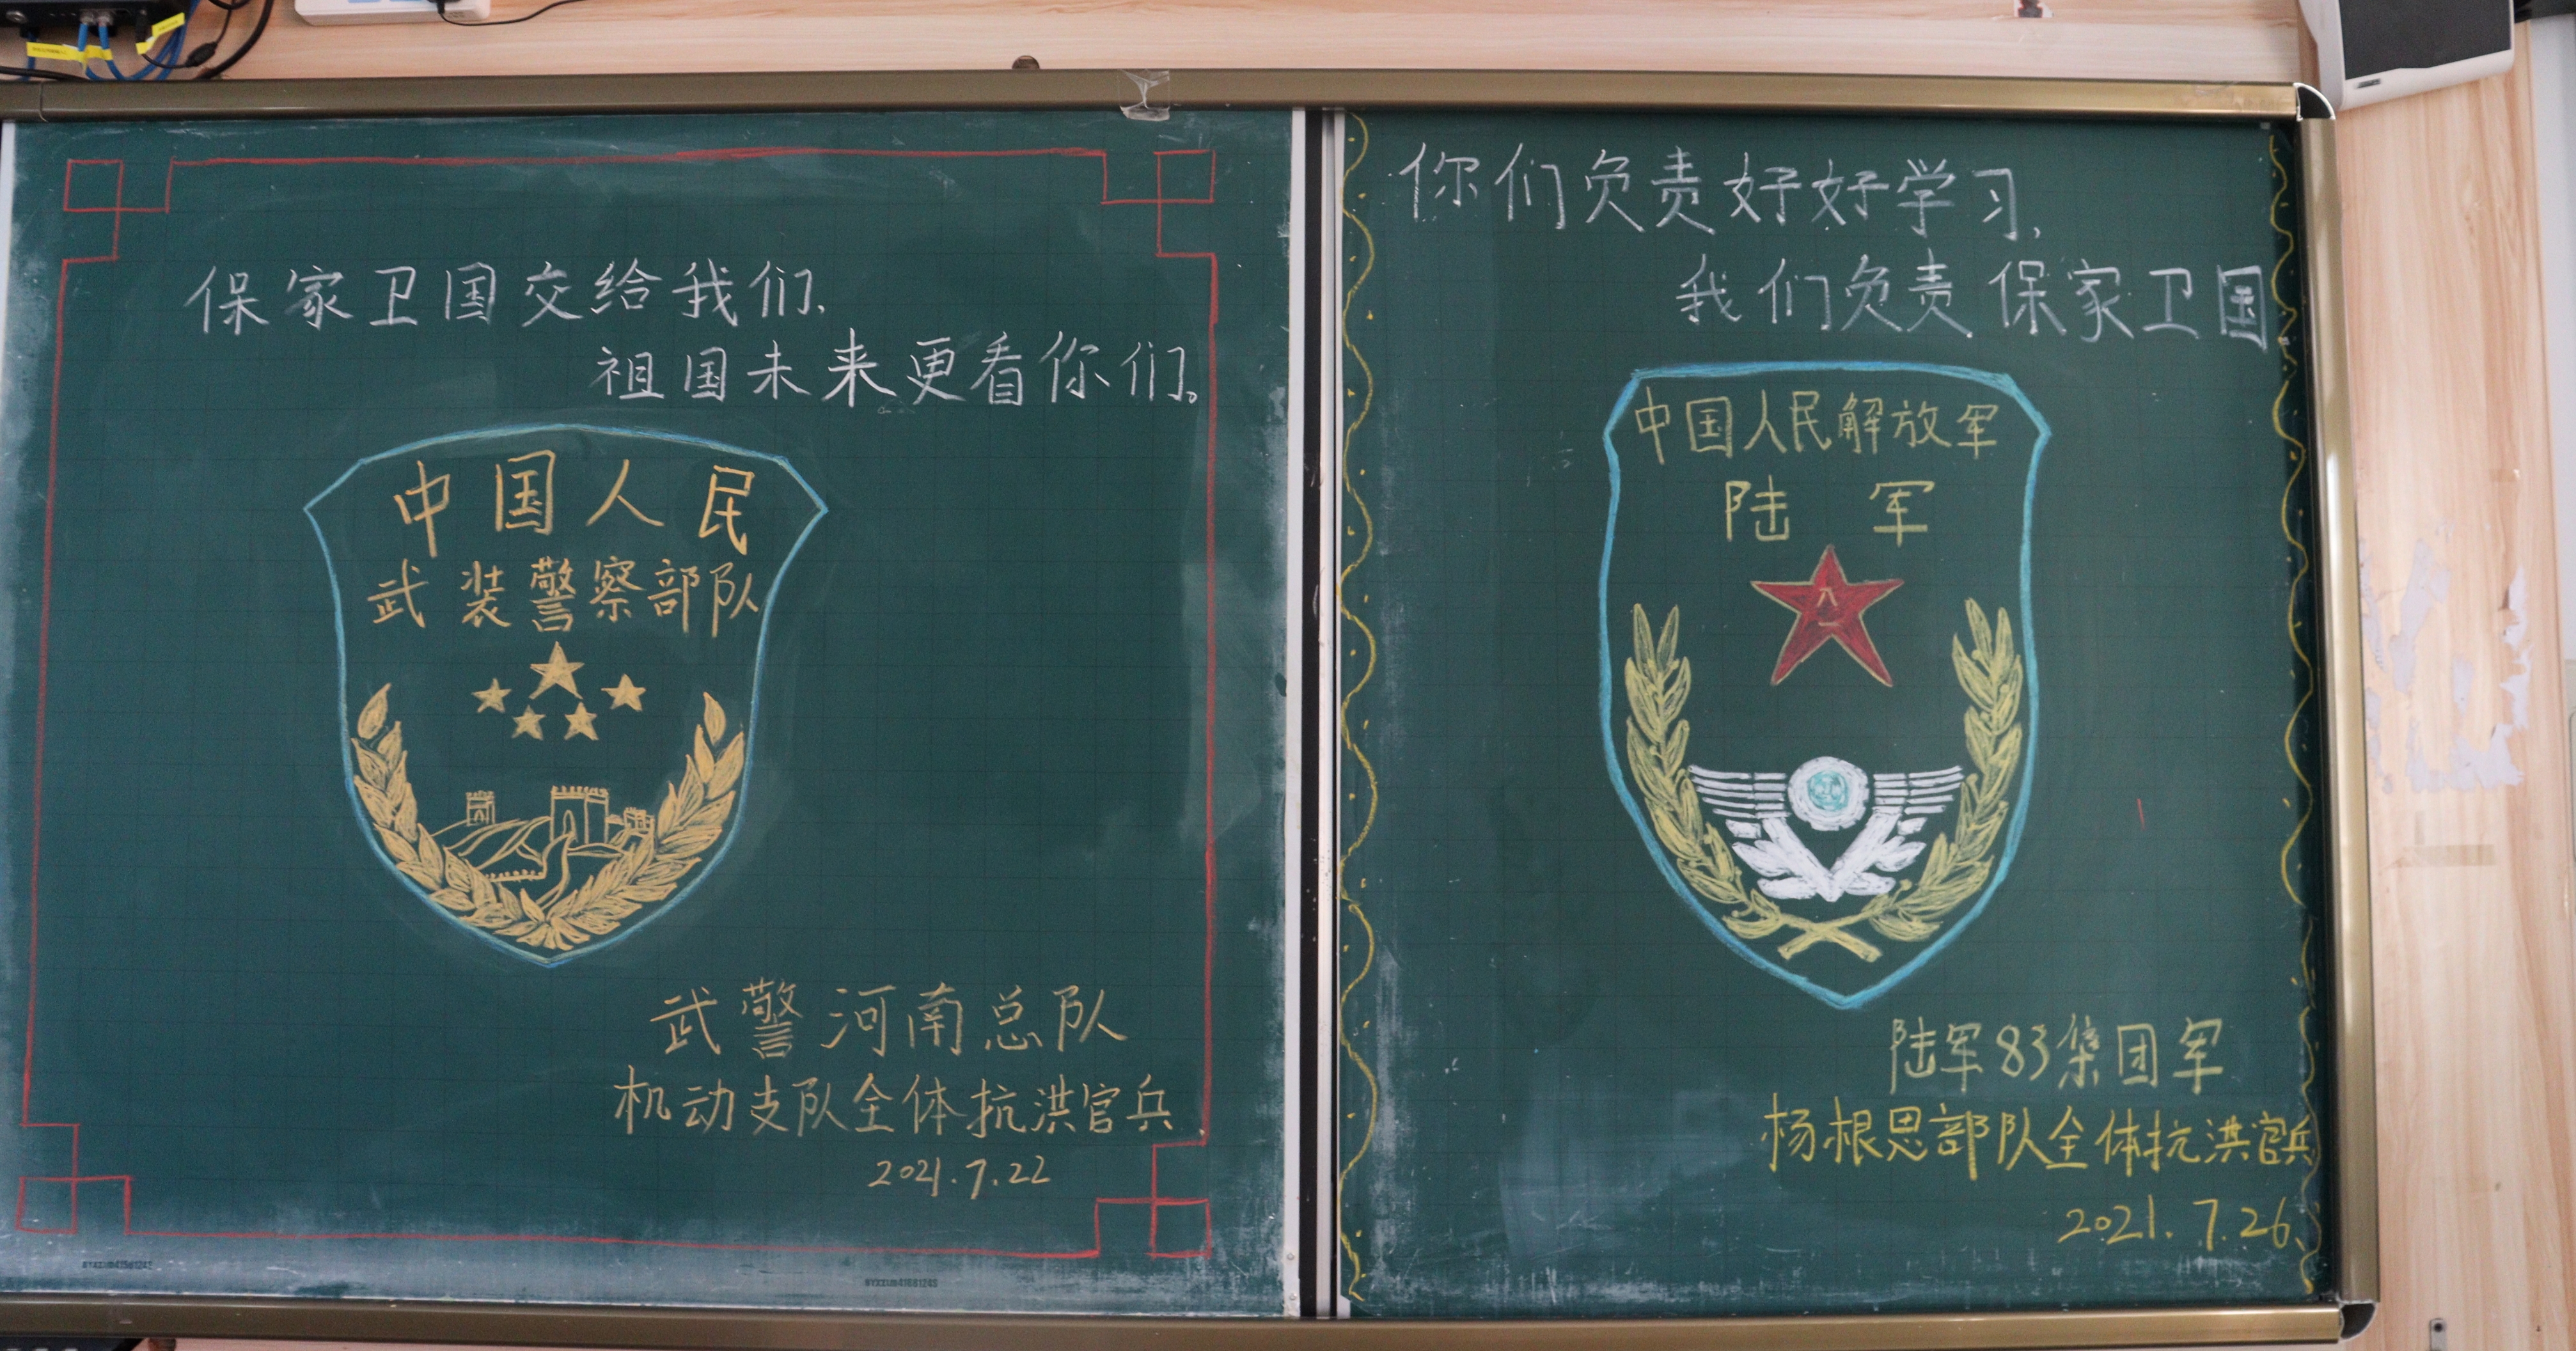 保家卫国交给我们,
祖国未来更看你们。
中国人民
武装警察部队
武警河南总队
机动支队全体抗洪官兵
2021.7.22
你们负责好好学习,
我们负责保家卫国
中国人民解放军
陆军
八一
陆军83集团军
杨根思部队全体抗洪官兵
2021.7.26